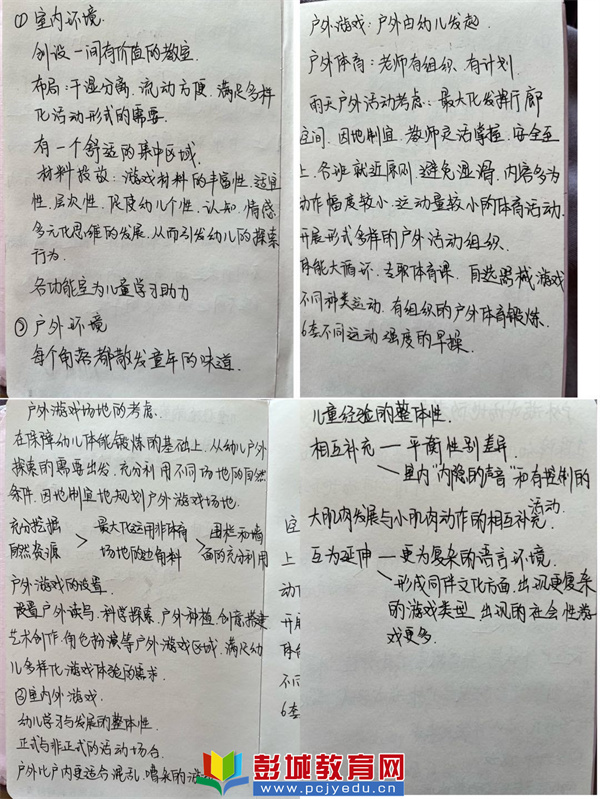 ① 室内环境
创设一间有价值的教室
布局:干湿分离、流动方便、满足多样
化活动形式的需要
有一个舒适的集中区域
材料投放:游戏材料的丰富性、适宜
性、层次性、促使幼儿个性、认知、情感、
多元化思维的发展、从而引发幼儿的探索
行为.
各功能室为儿童学习助力
② 户外环境
每个角落都散发童年的味道.
户外游戏:户外由幼儿发起.
户外体育:老师有组织、有计划.
雨天户外活动考虑:最大化发挥行廊
空间、因地制宜、教师灵活掌握、安全至
上、各班就近原则、避免湿滑、内容多为
动作幅度较小、运动量较小的体育活动.
开展形式多样的户外活动组织.
体能大循环、专职体育课、自选器械游戏
不同种类运动、有组织的户外体育锻炼.
6套不同运动强度的早操.
户外游戏场地的考虑.
在保障幼儿体能锻炼的基础上、从幼儿户外
探索的需要出发、充分利用不同场地的自然
条件、因地制宜地规划户外游戏场地.
充分挖掘
自然资源 > 最大化运用非体育
场地的边角料 > 围栏和墙
面的充分利用
户外游戏的设置.
设置户外读写、科学探索、户外种植、创意搭建
艺术创作、角色扮演等户外游戏区域、满足幼
儿多样化游戏体验的需求.
③室内外游戏.
幼儿学习与发展的整体性.
正式与非正式的活动场合.
户外比户内更适合混乱、嘈杂的活
空
上
动
开展
体能
不同
6套
儿童经验的整体性.
相互补充 — 平衡性别差异.
室内“内隐的声音”和有控制的
活动.
大肌肉发展与小肌肉动作的相互补充.
互为延伸 — 更为复杂的语言环境.
形成同伴文化方面、出现更复杂
的游戏类型、出现的社会性游
戏更多.
彭城教育网
www.pcjyedu.cn